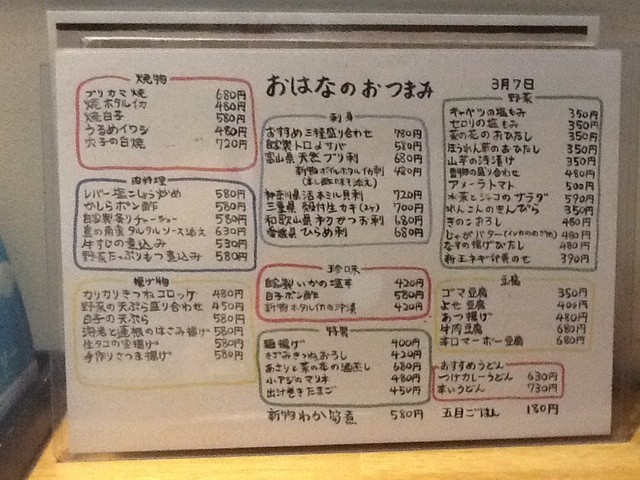 おはなのおつまみ
3月7日
焼物
ブリカマ焼 680円
焼ホタルイカ 480円
焼白子 580円
うるめイワシ 480円
穴子の白焼 720円
肉料理
レバー塩こしょう炒め 580円
かしらポン酢 580円
自家製炙りチャーシュー 580円
鶏の南蛮タルタルソース添え 630円
牛すじの煮込み 530円
野菜たっぷりもつ煮込み 580円
揚げ物
カリカリきつねコロッケ 480円
野菜の天ぷら盛り合わせ 450円
白子の天ぷら 580円
海老と蓮根のはさみ揚げ 580円
生タコの唐揚げ 580円
手作りさつま揚げ 580円
刺身
おすすめ三種盛り合わせ 980円
自家製トロ〆サバ 580円
富山県天然ブリ刺 680円
新物ボイルホタルイカ刺 480円
(辛し酢みそ添え)
神奈川県活本ミル貝刺 720円
三重県殻付生カキ(2ヶ) 700円
和歌山県初かつお刺 680円
愛媛県ひらめ刺 680円
珍味
自家製いかの塩辛 420円
白子ポン酢 580円
新物ホタルイカの沖漬 420円
特製
麺揚げ 400円
きざみきつねおろし 420円
あさりと菜の花の酒蒸し 680円
小アジのマリネ 480円
出汁巻きたまご 450円
新物わか筍煮 580円
野菜
キャベツの塩もみ 350円
セロリの塩もみ 350円
菜の花のおひたし 350円
ほうれん草のおひたし 350円
山芋の浅漬け 350円
香物の盛り合わせ 480円
アメーラトマト 500円
水菜とジャコのサラダ 590円
れんこんのきんぴら 350円
きのこおろし 480円
じゃがバター(インカのめざめ) 480円
なすの揚げびたし 480円
新玉ネギ 390円
豆腐
ゴマ豆腐 350円
よせ豆腐 400円
あつ揚げ 480円
牛肉豆腐 680円
辛口マーボー豆腐 680円
おすすめうどん
つけカレーうどん 630円
辛いうどん 730円
五目ごはん 180円